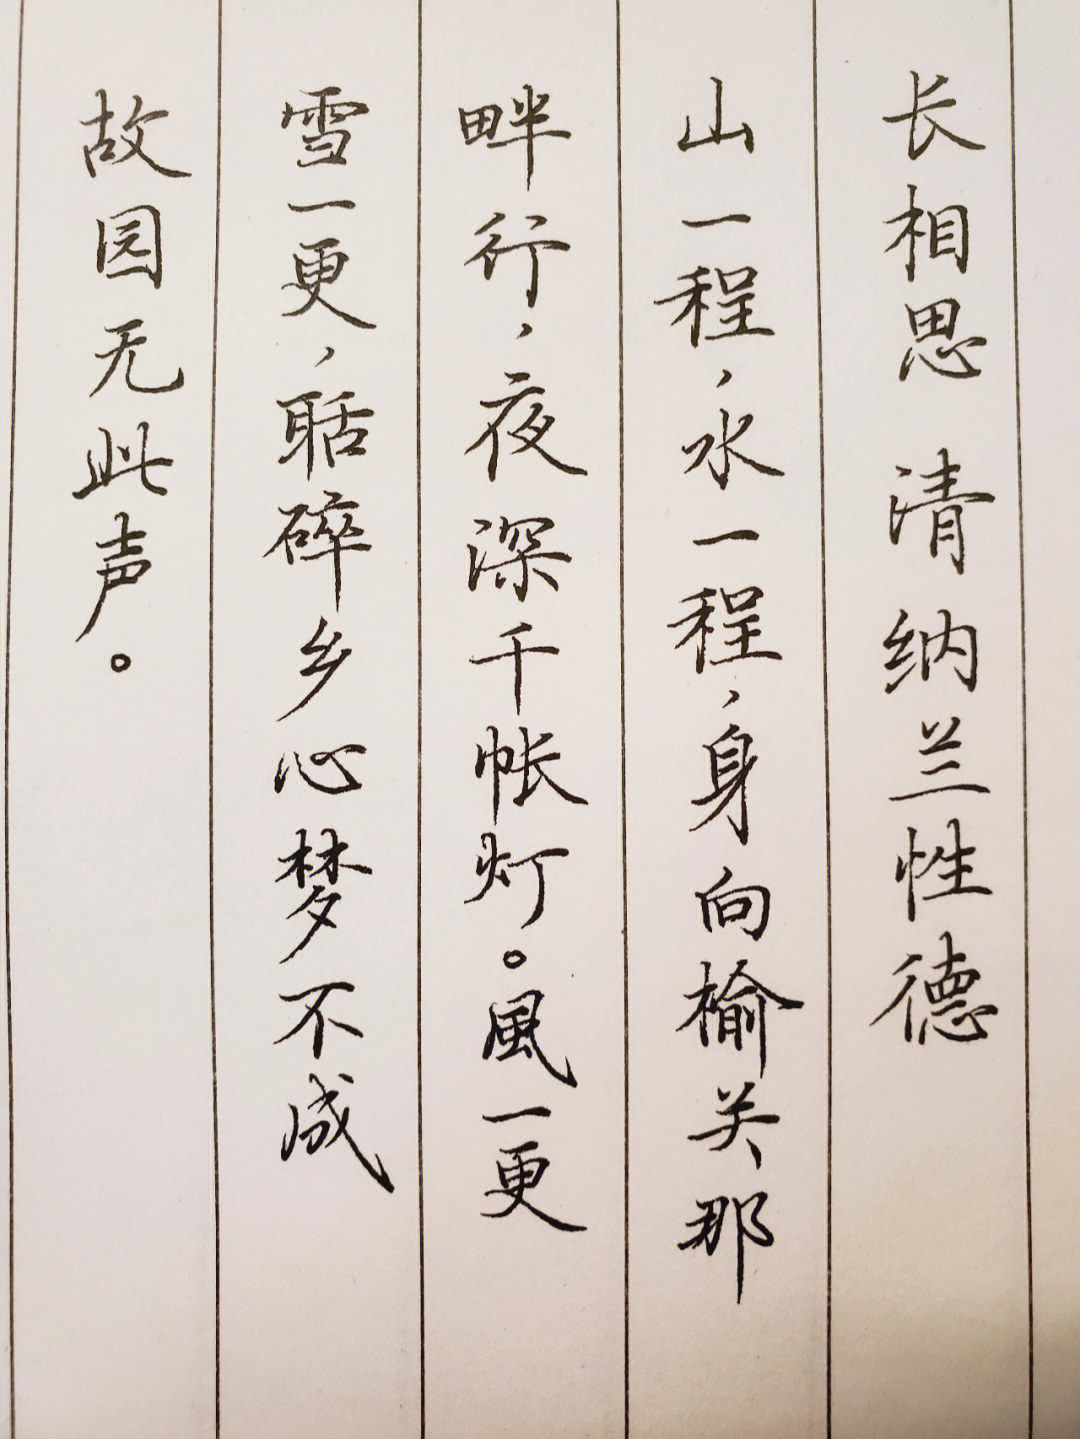 长相思 清 纳兰性德
山一程，水一程，身向榆关那
畔行，夜深千帐灯。風一更
雪一更，聒碎乡心梦不成
故园无此声。